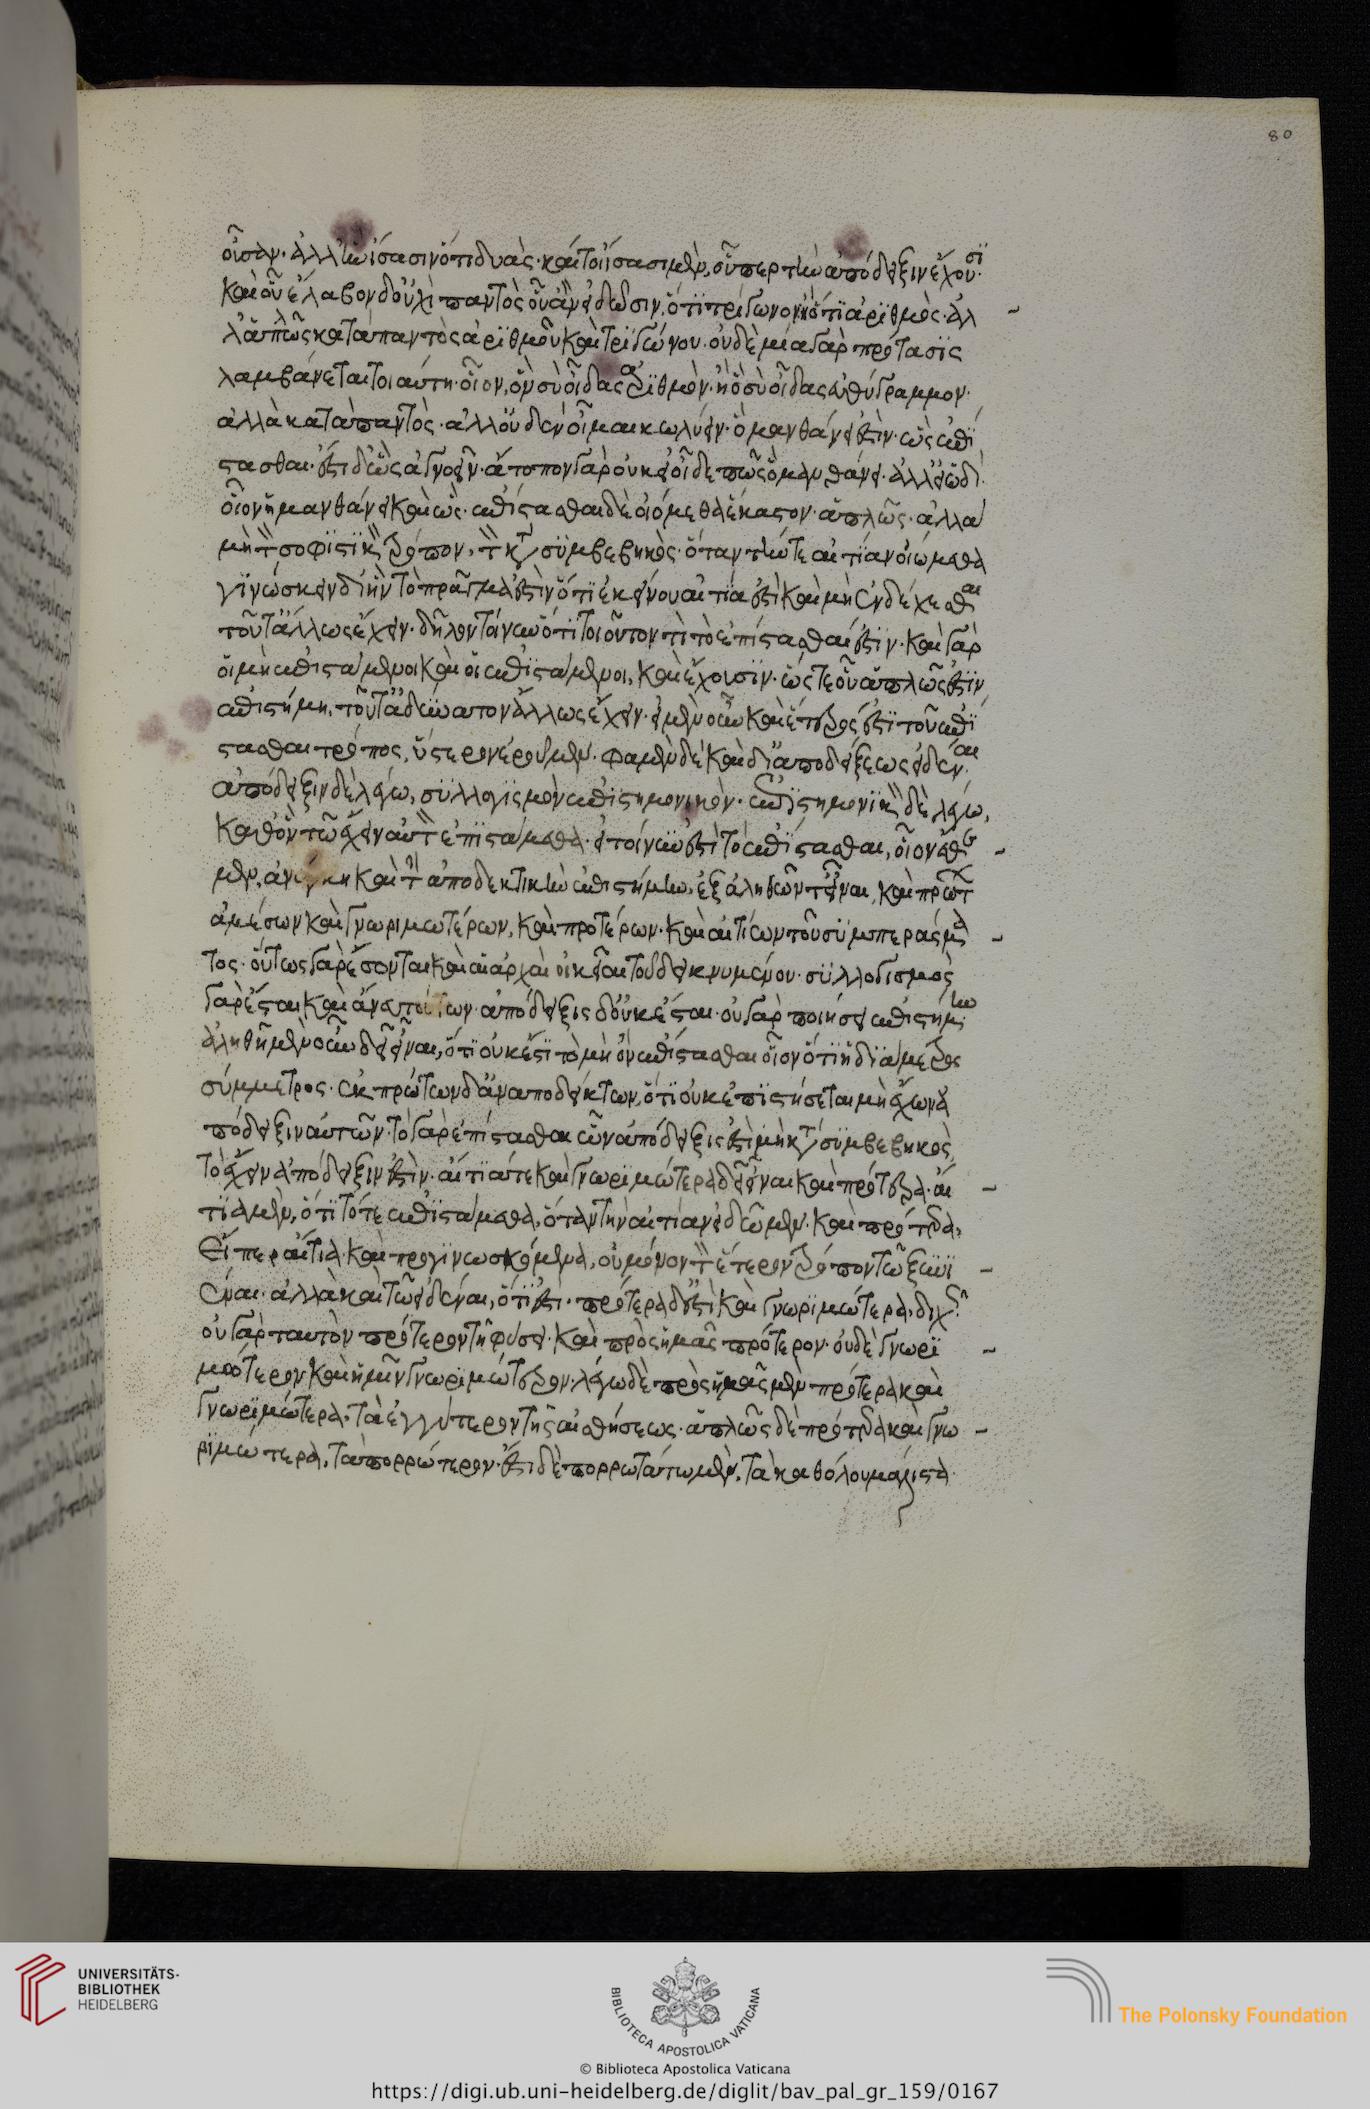 οἶσαν· ἀλλ' ἣν ἴσασιν ὅτι δυάς· καίτοι ἴσασι μὲν, οὗπερ τὴν ἀπόδειξιν ἔχουσι·
καὶ οὗ ἔλαβον δ' οὐχὶ παντὸς οὗ ἂν εἰδῶσιν, ὅτι τρίγωνον ἢ ὅτι ἀριθμός· ἀλ
λ' ἁπλῶς κατὰ παντὸς ἀριθμοῦ καὶ τριγώνου· οὐδὲ μία γὰρ πρότασις
λαμβάνεται τοιαύτη· οἷον, ὃν σὺ οἶδας ἀριθμὸν· ἢ ὃ σὺ οἶδας εὐθύγραμμον·
ἀλλὰ κατὰ παντὸς· ἀλλ' οὐδὲν οἶμαι κωλύει· ὃ μανθάνει ἐστὶν· ὡς ἐπί
στασθαι· ἔστι δ' ὡς ἀγνοεῖν· ἄτοπον γὰρ οὐκ εἰ οἶδε πως ὃ μανθάνει· ἀλλ' εἰ ὡδί·
οἷον ᾗ μανθάνει καὶ ὥς· ἐπίστασθαι δὲ οἰόμεθα ἕκαστον· ἁπλῶς· ἀλλὰ
μὴ τὸν σοφιστικὸν τρόπον, τὸν κατὰ συμβεβηκός· ὅταν τήν τε αἰτίαν οἰώμεθα
γινώσκειν δι' ἣν τὸ πρᾶγμα ἐστὶν ὅτι ἐκείνου αἰτία ἐστὶ καὶ μὴ ἐνδέχεσθαι
τοῦτ' ἄλλως ἔχειν· δῆλον τοίνυν ὅτι τοιοῦτον τὶ τὸ ἐπίστασθαι ἐστὶν· καὶ γὰρ
οἱ μὴ ἐπιστάμενοι καὶ οἱ ἐπιστάμενοι, καὶ ἔχουσιν· ὥστε οὗ ἁπλῶς ἐστὶν
ἐπιστήμη, τοῦτ' ἀδύνατον ἄλλως ἔχειν· εἰ μὲν οὖν καὶ ἕτερος ἐστὶ τοῦ ἐπί
στασθαι τρόπος, ὕστερον ἐροῦμεν· φαμὲν δὲ καὶ δι' ἀποδείξεως εἰδέναι·
ἀπόδειξιν δὲ λέγω, συλλογισμὸν ἐπιστημονικόν· ἐπιστημονικὸν δὲ λέγω,
καθ' ὃν τῷ ἔχειν αὐτὸν ἐπιστάμεθα· εἰ τοίνυν ἐστὶ τὸ ἐπίστασθαι, οἷον ἔθε
μεν, ἀνάγκη καὶ τὴν ἀποδεικτικὴν ἐπιστήμην, ἐξ ἀληθῶν τ' εἶναι, καὶ πρώτων
ἀμέσων καὶ γνωριμωτέρων, καὶ προτέρων· καὶ αἰτίων τοῦ συμπεράσμα
τος· οὕτως γὰρ ἔσονται καὶ αἱ ἀρχαὶ οἰκεῖαι τοῦ δεικνυμένου· συλλογισμὸς
γὰρ ἔσται καὶ ἄνευ τούτων· ἀπόδειξις δ' οὐκ ἔσται· οὐ γὰρ ποιήσει ἐπιστήμην·
ἀληθῆ μὲν οὖν δεῖ εἶναι, ὅτι οὐκ ἔστι τὸ μὴ ὂν ἐπίστασθαι οἷον ὅτι ἡ διάμετρος
σύμμετρος· ἐκ πρώτων δ' ἀναποδείκτων, ὅτι οὐκ ἐπιστήσεται μὴ ἔχων ἀ
πόδειξιν αὐτῶν· τὸ γὰρ ἐπίστασθαι ὧν ἀπόδειξις ἐστὶ μὴ κατὰ συμβεβηκὸς,
τὸ ἔχειν ἀπόδειξιν ἐστὶν· αἴτια τε καὶ γνωριμώτερα δεῖ εἶναι καὶ πρότερα· αἴ
τια μὲν, ὅτι τότε ἐπιστάμεθα, ὅταν τὴν αἰτίαν εἰδῶμεν· καὶ πρότερα,
εἴπερ αἴτια· καὶ προγινωσκόμενα, οὐ μόνον τὸν ἕτερον τρόπον τῷ ξυνι
έναι· ἀλλὰ καὶ τῷ εἰδέναι, ὅτι ἐστι· πρότερα δ' ἐστὶ καὶ γνωριμώτερα, διχῶς·
οὐ γὰρ ταυτὸν πρότερον τῇ φύσει· καὶ πρὸς ἡμᾶς πρότερον· οὐδὲ γνωρι
μώτερον καὶ ἡμῖν γνωριμώτερον· λέγω δὲ πρὸς ἡμᾶς μὲν πρότερα καὶ
γνωριμώτερα, τὰ ἐγγύτερον τῆς αἰσθήσεως· ἁπλῶς δὲ πρότερα καὶ γνω
ριμώτερα, τὰ πορρώτερον· ἔστι δὲ πορρωτάτω μὲν, τὰ καθόλου μάλιστα·
80
UNIVERSITÄTS-
BIBLIOTHEK
HEIDELBERG
BIBLIOTECA APOSTOLICA VATICANA
The Polonsky Foundation
© Biblioteca Apostolica Vaticana
https://digi.ub.uni-heidelberg.de/diglit/bav_pal_gr_159/0167